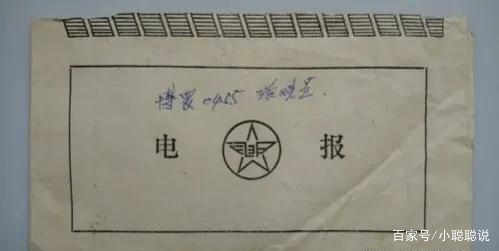 博罗0455 张晓兰.
电 报
百家号/小聪聪说